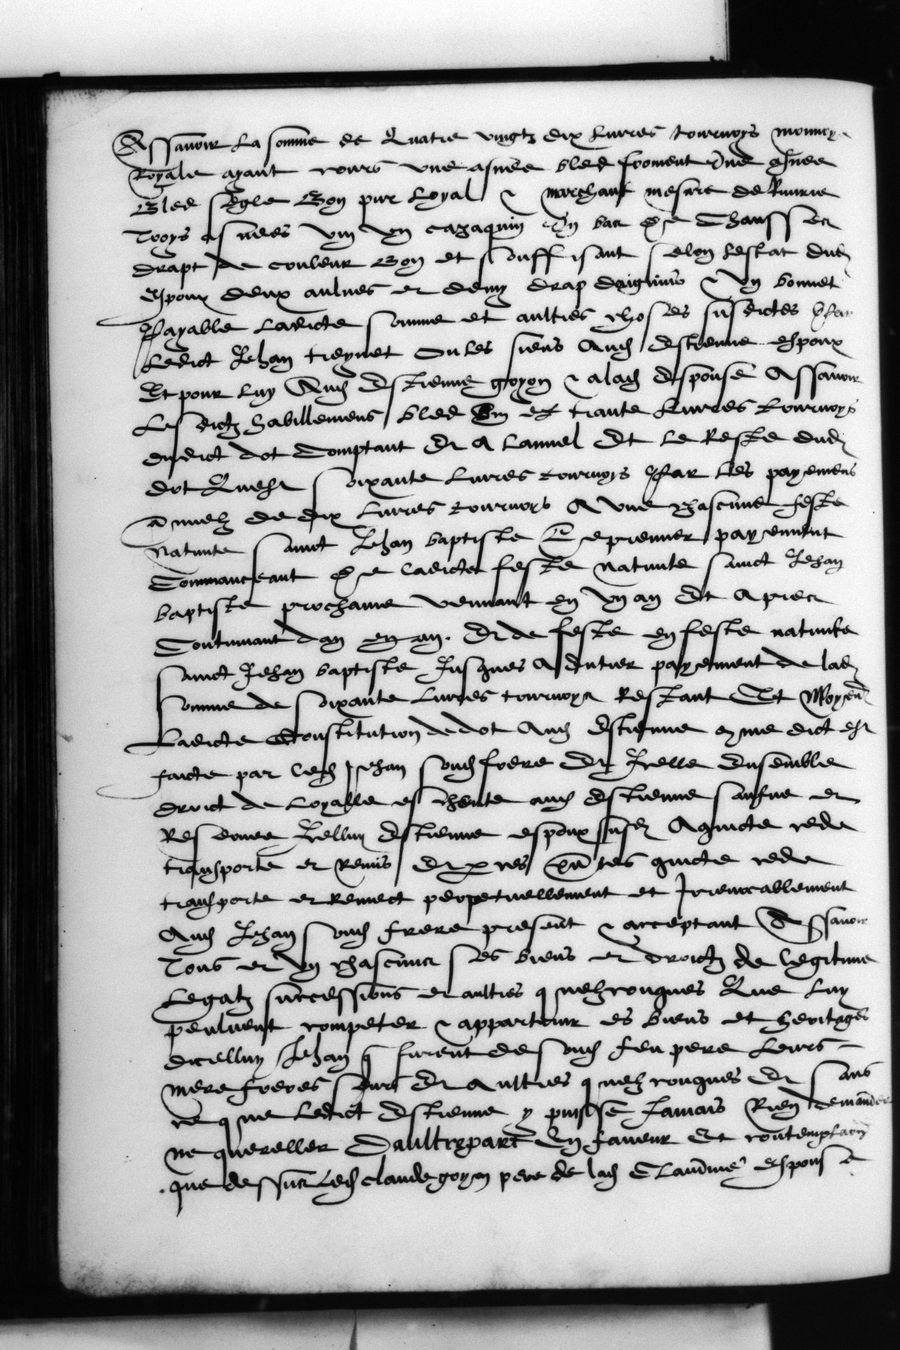 Assavoir La somme de Quatre vingtz dix Livres tournoys monnoy
Royale ayant cours une asnee bled froment Une asnee
Bled Segle Bon pur Loyal & marchant mesure de
Troys asnees vin Un cazaquin Un bas de Chausses
drapt de couleur Bon et souffisant selon Lestat dud
espoux deux aulnes et demy drap & Un bonnet
Payable Ladicte somme et aultres choses susdictes Par
Ledict Jehan treynet Ou Les siens Aud estienne espoux
Et pour Luy Aud Estienne goyon & alad espouse Assavoir
Les dictz habillemens bled vin et trante Livres tournoys
dudict dot Comptant Et A Lannel Et Le Reste dud
dot Quest soixante Livres tournoys Par Les payemens
annuelz de dix Livres tournoys A Une chascune feste
nativite sainct Jehan baptiste Le premier payement
Commanceant de Ladicte feste nativite sainct Jehan
baptiste prochaine venant en Un an Et Apres
Continuant dan en an. Et de feste en feste nativite
sainct Jehan baptiste Jusques A entier payement de lad
somme de soixante Livres tournoys Restant Et Moyen
Ladicte Constitution de dot Aud Estienne comme dict est
faicte par led Jehan sond frere Et Icelle Ensemble
droict de Loyalle escheute aud Estienne saufve et
Reservee Icelluy Estienne espoux susd A quicte cede
transporte et Remis Et par ces presentes quicte cede
transporte et Remect perpetuellement et Irrevocablement
Aud Jehan sond frere present & acceptant Assavoir
Tous et Un chascuns ses biens et droictz de Legitime
Legatz successions et aultres quelzconques Que Luy
peulvent competer & appartenir es biens et heritages
dicelluy Jehan q furent de sond feu pere Leurs
mere freres seurs Et Aultres quelzconques Et sans
ce que Ledict Estienne y puisse Jamais Rien demander
ne quereller Daultrepart En faveur Et contemplaon
que dessus Led claude goyon pere de lad Claudine espouse